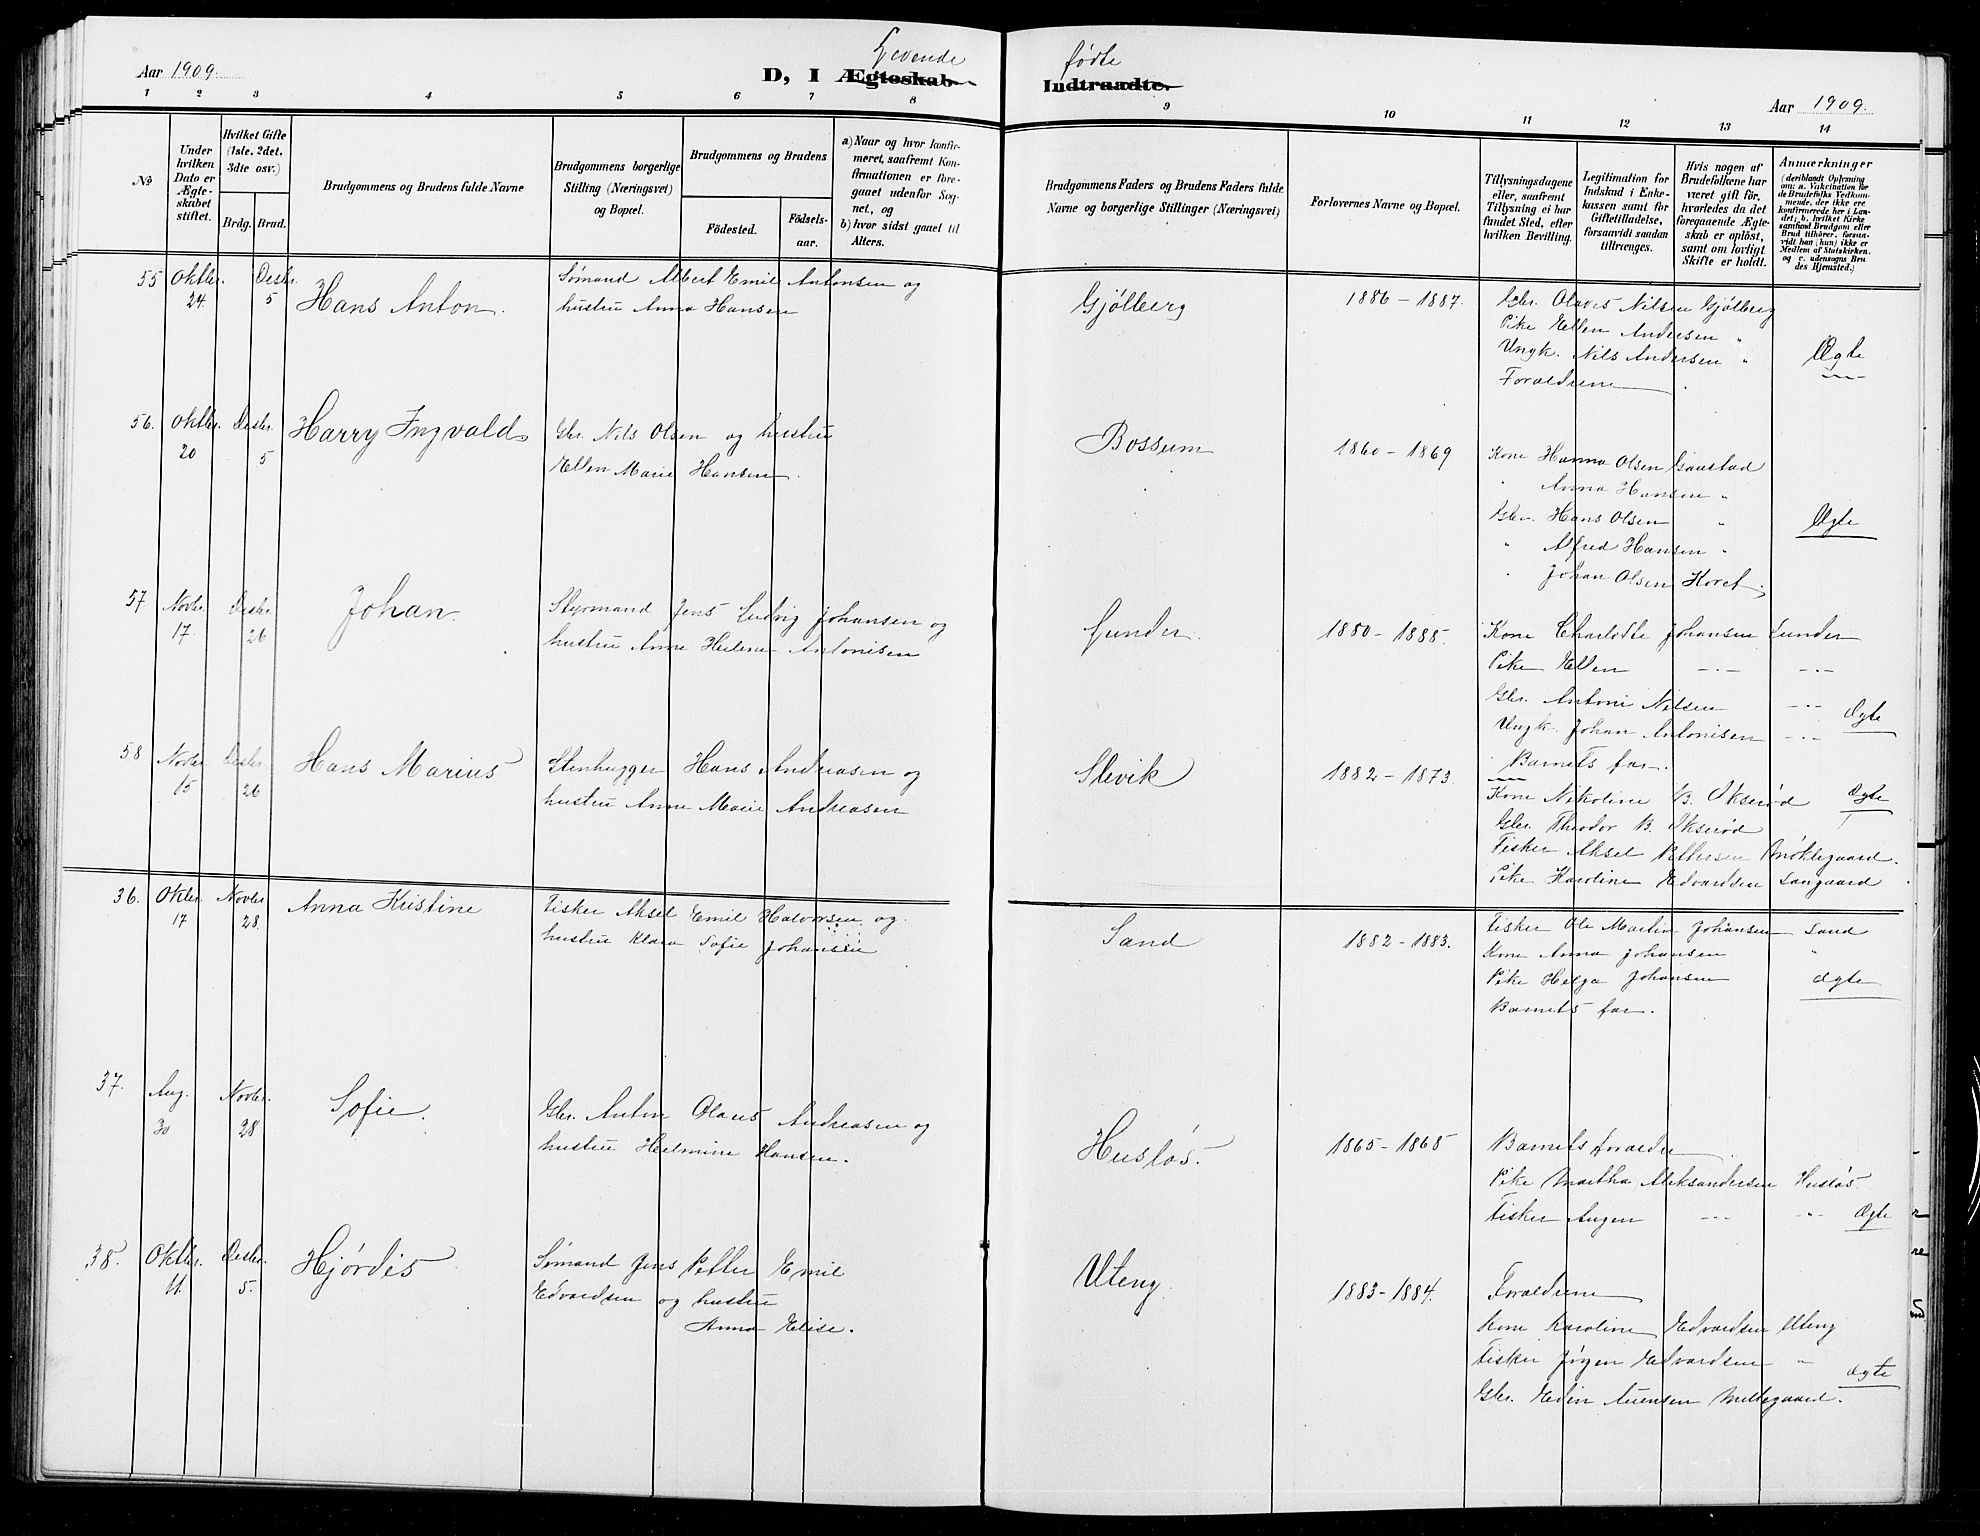 Aar 1909.
D, I Ægteskab Indtraadte
Levende fødte
Aar 1909.
1 2 3 4 5 6 7 8 9 10 11 12 13 14
No
Under hvilken Dato er Ægteskabet stiftet.
Hvilket Gifte (1ste, 2det, 3die osv.)
Brdg. Brud.
Brudgommens og Brudens fulde Navne
Brudgommens borgerlige Stilling (Næringsvei) og Bopæl.
Brudgommens og Brudens
Födested.
Födselsaar.
a) Naar og hvor konfirmeret, saafremt Konfirmationen er foregaaet udenfor Sognet, og
b) hvor sidst gaaet til Alters.
Brudgommens Faders og Brudens Faders fulde Navne og borgerlige Stillinger (Næringsvei)
Forlovernes Navne og Bopæl.
Tillysningsdagene eller, saafremt Tillysning ei har fundet Sted, efter hvilken Bevilling.
Legitimation for Indskud i Enkekassen samt for Giftetilladelse, forsaavidt saadan tiltrænges.
Hvis nogen af Brudefolkene har været gift før, hvorledes da det foregaaende Ægteskab er opløst, samt om lovligt Skifte er holdt.
Anmærkninger (deriblandt Oplysning om: a. Vakcination for de Brudefolks Vedkommende, der ikke ere konfirmerede her i Landet; b. hvilket Kirkesamfund Brudgom eller Brud tilhører, forsaavidt han (hun) ikke er Medlem af Statskirken. og c. udensogns Brudes Hjemsted.)
55 Oktbr. 24. Desbr. 5 Hans Anton.
Sømand Albert Emil Antonsen og
hustru Anna Hansen
Gjølberg
1886 - 1887.
Gbr. Olaves Nilsen Gjølberg
Pike Ellen Andersen "
Ungk. Nils Andersen "
Forældrene
Ægte
56. Oktbr. 20 Desbr. 5 Harry Ingvald
Gbr. Nils Olsen og hustru
Ellen Marie Hansen.
Bossum
1860 - 1869
Kone Hanna Olsen Gaustad
" Anna Hansen "
Gbr. Hans Olsen "
" Alfred Hansen "
" Johan Olsen
Ægte
57 Novbr. 17. Desbr. 26 Johan.
Styrmand Jens Ludvig Johansen og
hustru Anne Helene Antonisen
Lunder.
1880 - 1885.
Kone Charlotte Johansen Lunder
Pike Ellen -"- -"-
Gbr. Antoni Nilsen -"-
Ungk. Johan Antonisen -"-
Barnets far.
Ægte
58 Novbr. 15 Desbr. 26 Hans Marius
Stenhugger Hans Andreasen og
hustru Anne Marie Andreasen
Slevik
1882 - 1873.
Kone Nikoline B. Okserød
Gbr. Theodor B. Okserød
Fisker Aksel Pettersen
Pike Karoline Edvardsen
Ægte
36. Oktbr. 17 Novbr. 28 Anna Kristine
Fisker Aksel Emil Halvorsen og
hustru Klara Sofie Johansen
Sand
1882 - 1883.
Fisker Ole Martin Johansen Sand
Kone Anna Johansen "
Pike Helga Johansen
Barnets far.
Ægte
37. Aug. 30 Novbr. 28 Sofie.
Gbr. Anton Olaus Andreasen og
hustru Helmine Hansen.
Husløs.
1865 - 1868
Barnets forældre
Pike Martha Aleksandersen Husløs.
Fisker -"- "
Ægte
38. Oktbr. 11. Desbr. 5. Hjørdis
Sømand Jens Petter Emil
Edvardsen og hustru
Anna Elise.
Uteng.
1883 - 1884.
Forældrene
Kone Karoline Edvardsen Uteng
Fisker Jørgen Edvardsen "
Gbr. Edin
Ægte